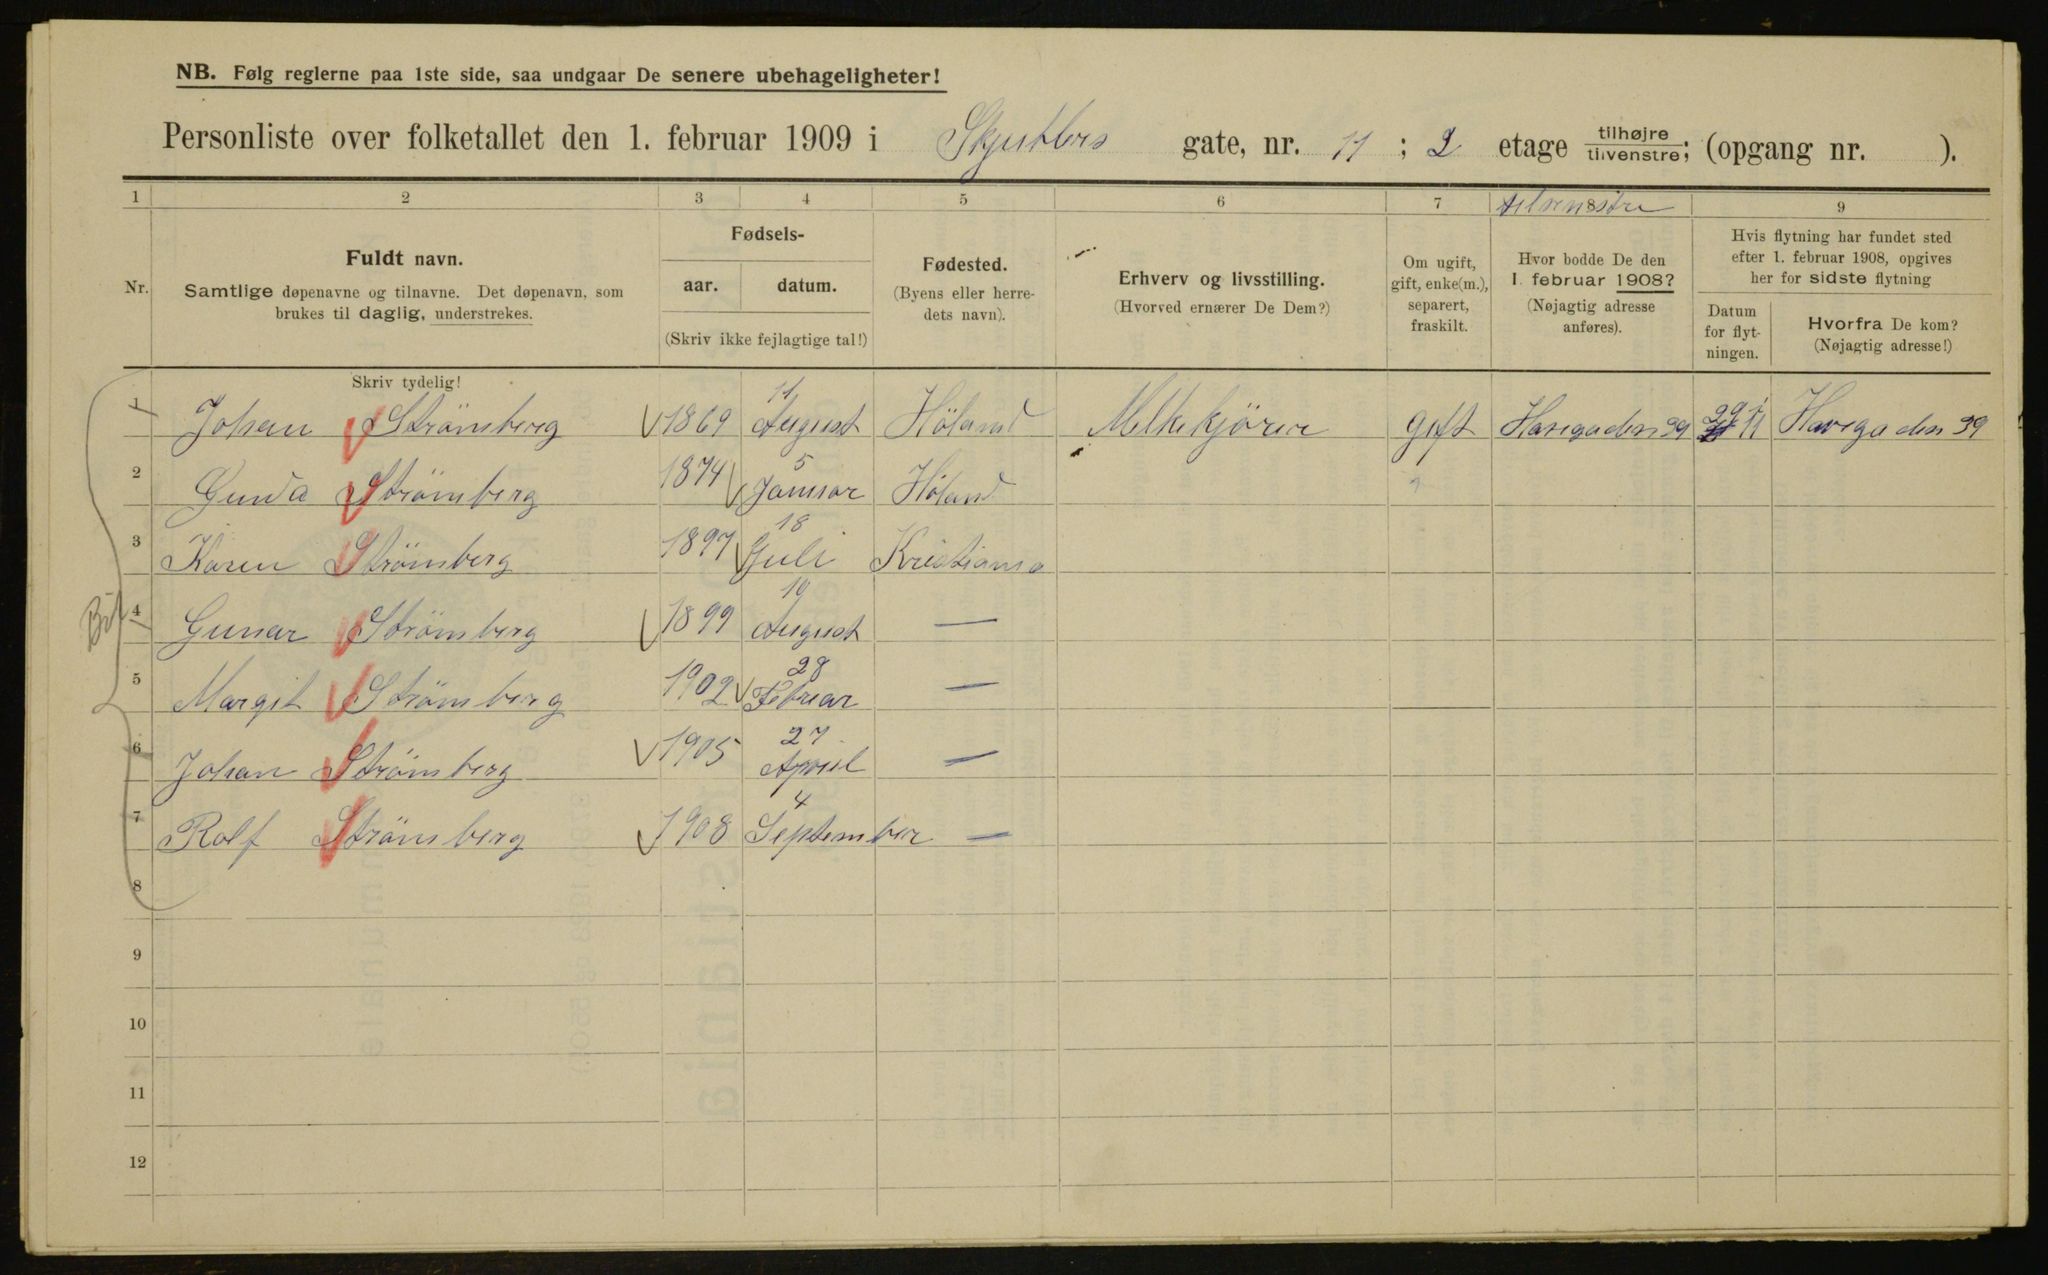 NB. Følg reglerne paa 1ste side, saa undgaar De senere ubehageligheter!
Personliste over folketallet den 1. februar 1909 i gate, nr. 11 ; 2 etage tilhøjre/tilvenstre; (opgang nr. ).
1 2 3 4 5 6 7 8 9
tilvenstre
Nr.
Fuldt navn.
Samtlige døpenavne og tilnavne. Det døpenavn, som
brukes til daglig, understrekes.
Skriv tydelig!
Fødsels-
aar. datum.
(Skriv ikke fejlagtige tal!)
Fødested.
(Byens eller herre-
dets navn).
Erhverv og livsstilling.
(Hvorved ernærer De Dem?)
Om ugift,
gift, enke(m.),
separert,
fraskilt.
Hvor bodde De den
1. februar 1908?
(Nøjagtig adresse
anføres).
Hvis flytning har fundet sted
efter 1. februar 1908, opgives
her for sidste flytning
Datum
for flyt-
ningen.
Hvorfra De kom?
(Nøjagtig adresse!)
1 Johan Strömberg 1869 11 August Höland Melkekjörer gift Havegaden 39 29 11 Havegaden 39
2 Gunda Strömberg 1874 5 Januar Höland
3 Karen Strömberg 1897 18 Juli Kristiania
4 Gunar Strömberg 1899 19 August —
5 Margit Strömberg 1902 28 Februar —
6 Johan Strömberg 1905 27 April —
7 Rolf Strömberg 1908 4 September —
8
9
10
11
12